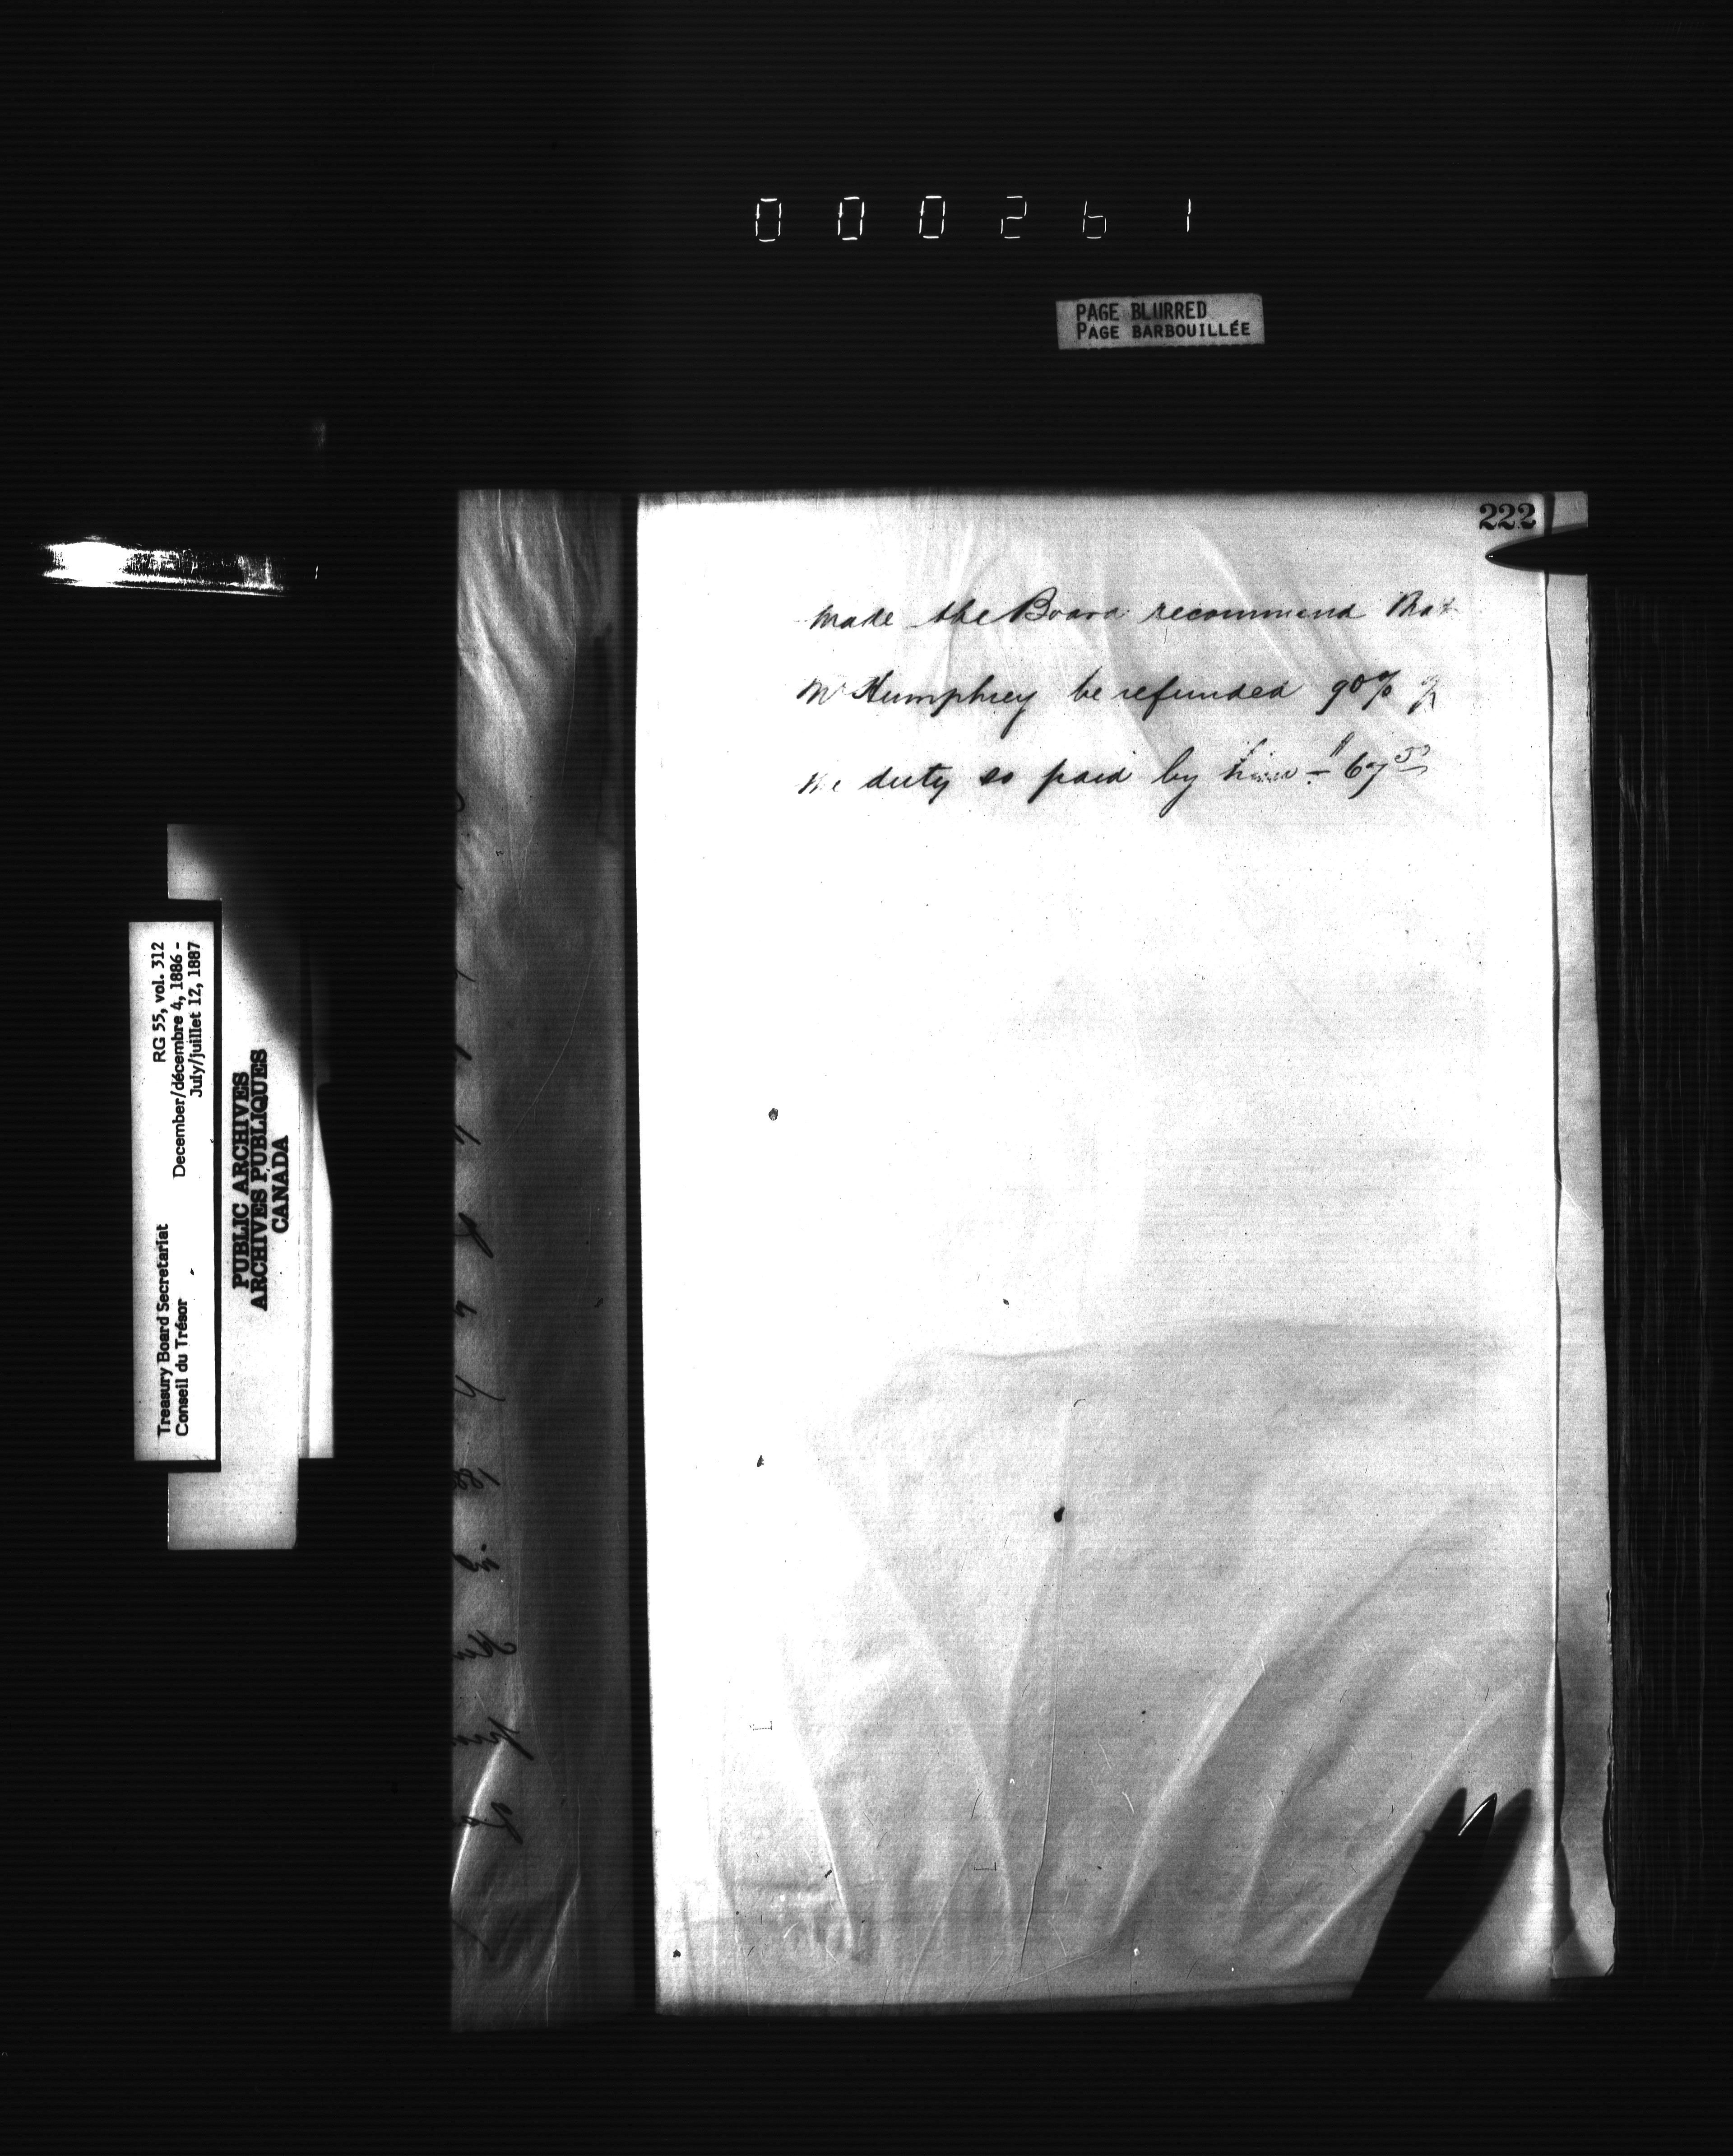 000261
PAGE BLURRED
PAGE BARBOUILLÉE
222
made the Board recommend that
Mr Humphrey be refunded 90% of
the duty so paid by him - $67.50
Treasury Board Secretariat RG 55, vol. 312
Conseil du Trésor December/décembre 4, 1886 -
July/juillet 12, 1887
PUBLIC ARCHIVES
ARCHIVES PUBLIQUES
CANADA